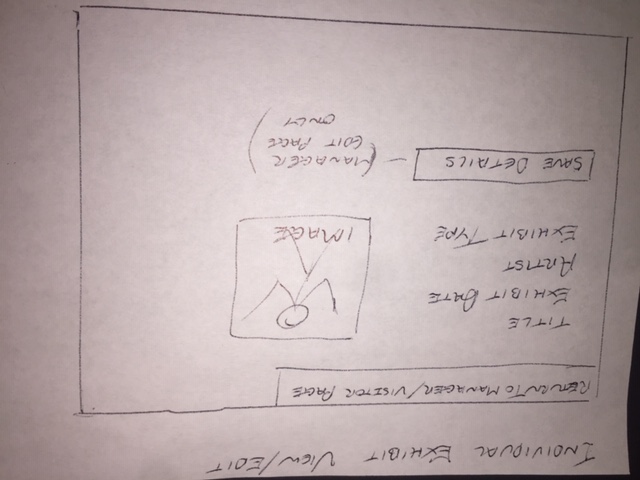 INDIVIDUAL EXHIBIT VIEW/EDIT
RETURN TO MANAGER/VISITOR PAGE
TITLE
EXHIBIT DATE
ARTIST
EXHIBIT TYPE
IMAGE
SAVE DETAILS - (MANAGER
EDIT PAGE
ONLY)